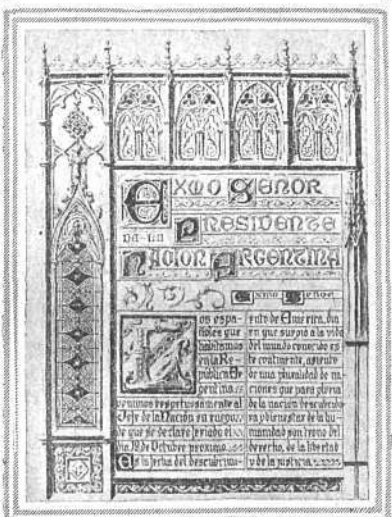 EXMO SEÑOR
PRESIDENTE
DE LA
NACION ARGENTINA
EXMO SEÑOR
LOS espa-
ñoles que
habitamos
en la Re-
pública Ar
gentina
venimos respetuosamente al
Jefe de la Nación en ruego
de que se declare feriado el
dia 12 de Octubre proximo.
Es la fecha del descubrimi-
ento de America, dia
en que surgió a la vida
del mundo conocido es
te continente, asiento
de una pluralidad de na-
ciones que para gloria
de la nación descubrido
ra y bienestar de la hu
manidad son trono del
derecho, de la libertad
y de la justicia